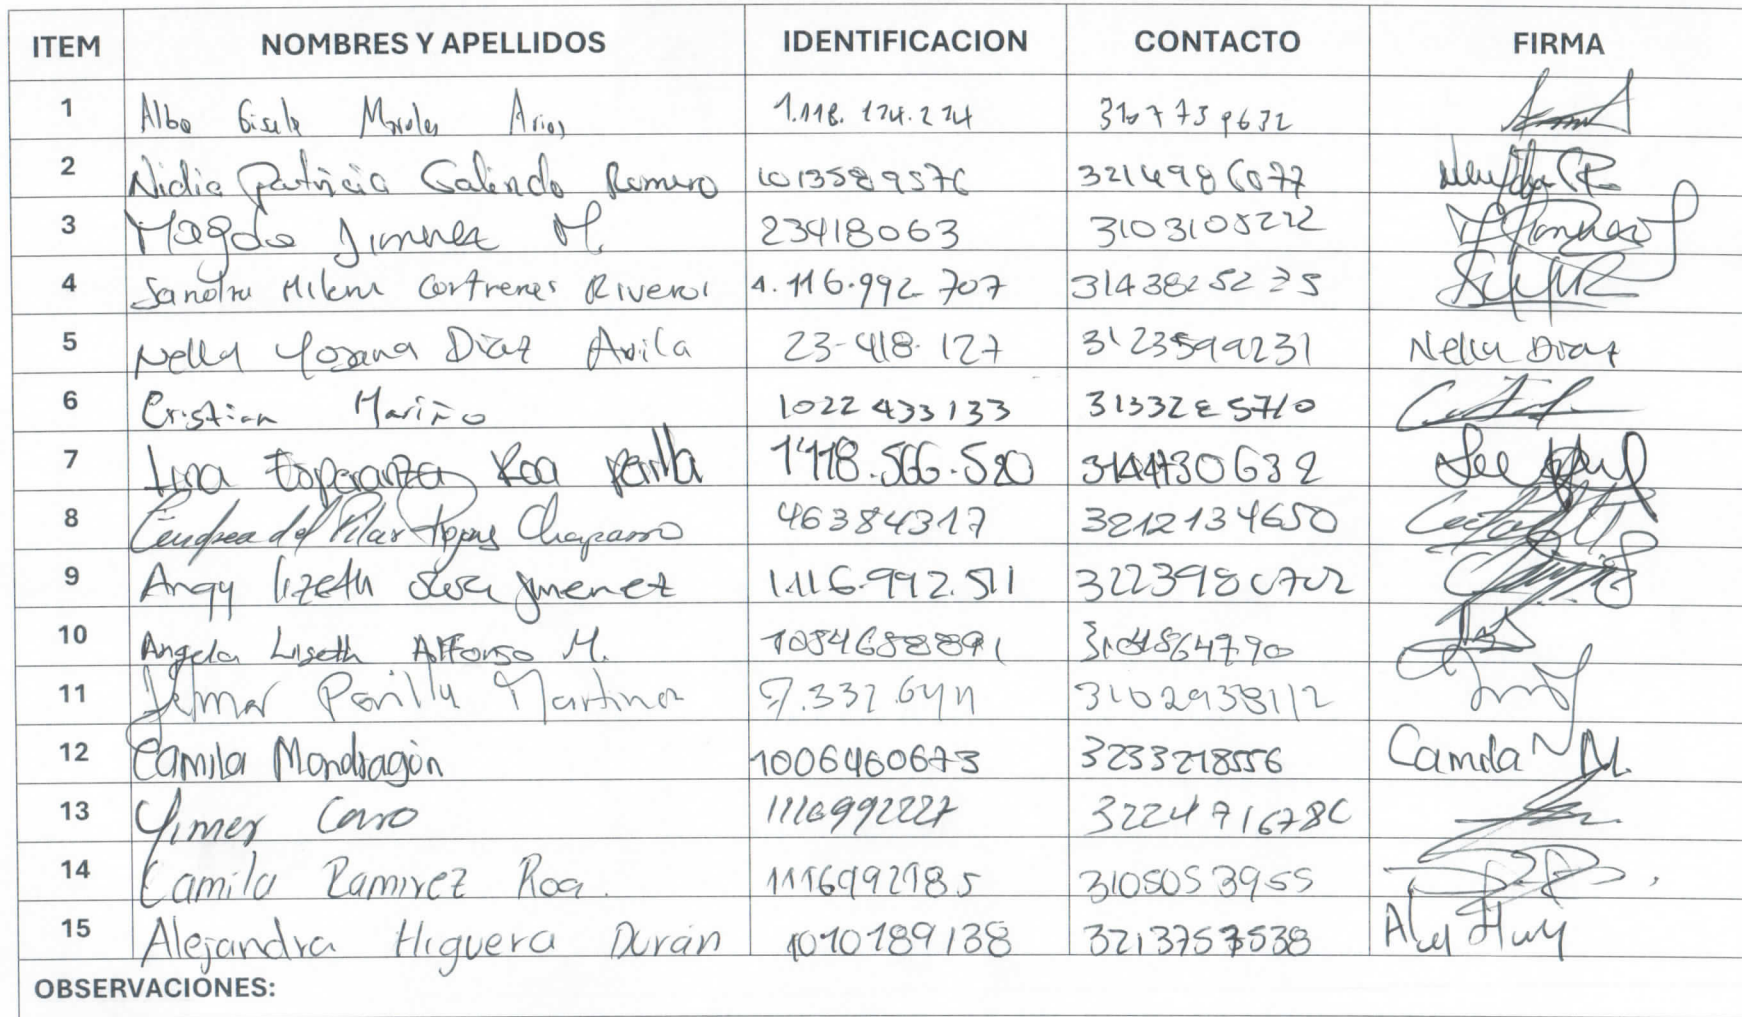 ITEM NOMBRES Y APELLIDOS IDENTIFICACION CONTACTO FIRMA
1 Alba Gisele Morales Arias 1.118.124.224 3107739632
2 Nidia Patricia Galindo Romero 1013589576 3214986077
3 Magda Jimenez M. 23418063 3103105222
4 Sandra Milena Contreras Riveros 1.116.992.707 3143825225
5 Nelly Yojana Diaz Avila 23-418-127 3123599231 Nelly Diaz
6 Cristian Mariño 1022433133 3133285710
7 Lina Esperanza Roa Parilla 1118.566.520 3144730632
8 del Pilar Chaparro 46384317 3212134650
9 Angy lizeth Jimenez 1.116.992.511 3223980702
10 Angela Liseth Alfonso M. 3104864790
11 Parilla Martinez 3102938112
12 Camila Mondragón 1006460673 3233218556 Camila M.
13 Yimer Caro 1116992227 3224716786
14 Camila Ramirez Roa. 1116992185 3105053955
15 Alejandra Higuera Durán 1010189138 3213757538
OBSERVACIONES: